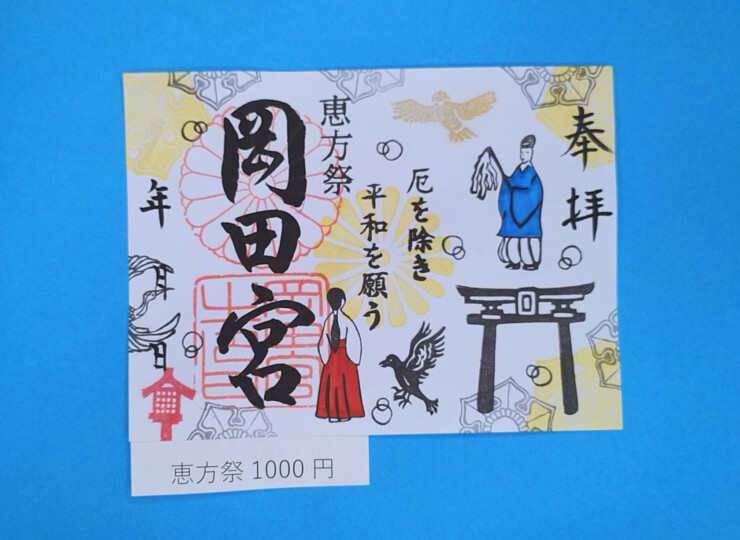 奉拝
厄を除き
平和を願う
恵方祭
岡田宮
年月日
恵方祭 1000 円